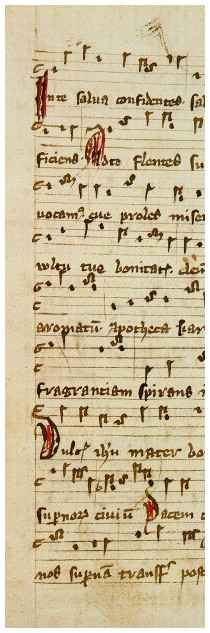 Ante salua confidentes. sal
ficiens. Dote flentes su
uocam⁹ eue proles miser
wltu tue bonitatis.
aromatū apotheca kar
fragranciam spirans i
Dulcis ih'u mater bo
sup̄noꝝ ciuiū Pacem
nos sup̄nā transf post